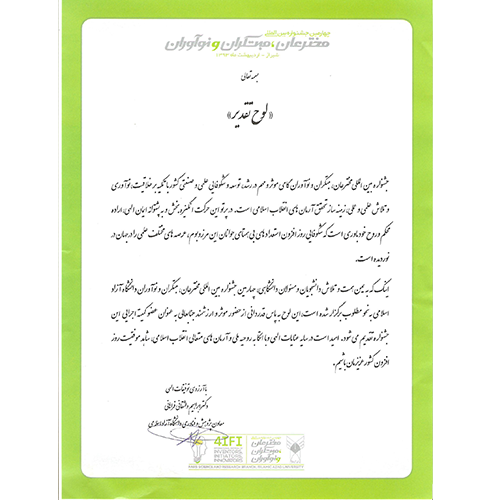 چهارمین جشنواره بین المللی
مخترعان، مبتکران و نوآوران
شیراز - اردیبهشت ماه ۱۳۹۳
بسمه تعالی
«لوح تقدیر»
جشنواره بین المللی مخترعان، مبتکران و نوآوران گامی موثر و مهم در رشد، توسعه و شکوفایی علمی و صنعتی کشور با تکیه بر خلاقیت، نوآوری
و تلاش علمی و عملی، زمینه ساز تحقق آرمان های انقلاب اسلامی است. در پرتو این حرکت انگیزه بخش و به پشتوانه ایمان الهی، اراده
محکم و روح خودباوری است که شکوفایی روز افزون استعدادهای بی همتای جوانان این مرز و بوم، عرصه های مختلف علمی را در جهان در
نوردیده است.
اینک که به یمن همت و تلاش دانشجویان و مسئولان دانشگاهی، چهارمین جشنواره بین المللی مخترعان، مبتکران و نوآوران دانشگاه آزاد
اسلامی به نحو مطلوب برگزار شده است، این لوح به پاس قدردانی از حضور موثر و ارزشمند جنابعالی به عنوان عضو کمیته اجرایی این
جشنواره تقدیم می شود. امید است در سایه عنایات الهی و با اتکا به روحیه ملی و آرمان های متعالی انقلاب اسلامی، شاهد موفقیت روز
افزون کشور عزیزمان باشیم.
با آرزوی توفیقات الهی
دکتر ابراهیم واشقانی فراهانی
معاون پژوهش و فناوری دانشگاه آزاد اسلامی
4IFI
INVENTORS,
INITIATORS,
INNOVATORS
مخترعان
مبتکران
و نوآوران